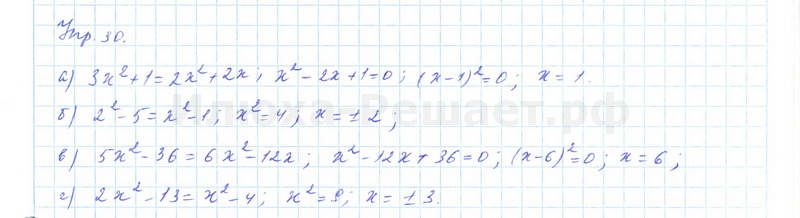 Упр. 30.
а) 3x²+1=2x²+2x; x²-2x+1=0; (x-1)²=0; x=1.
б) 2²-5=x²-1; x²=4; x=±2;
в) 5x²-36=6x²-12x; x²-12x+36=0; (x-6)²=0; x=6;
г) 2x²-13=x²-4; x²=9; x=±3.
Илюха-Решает.рф